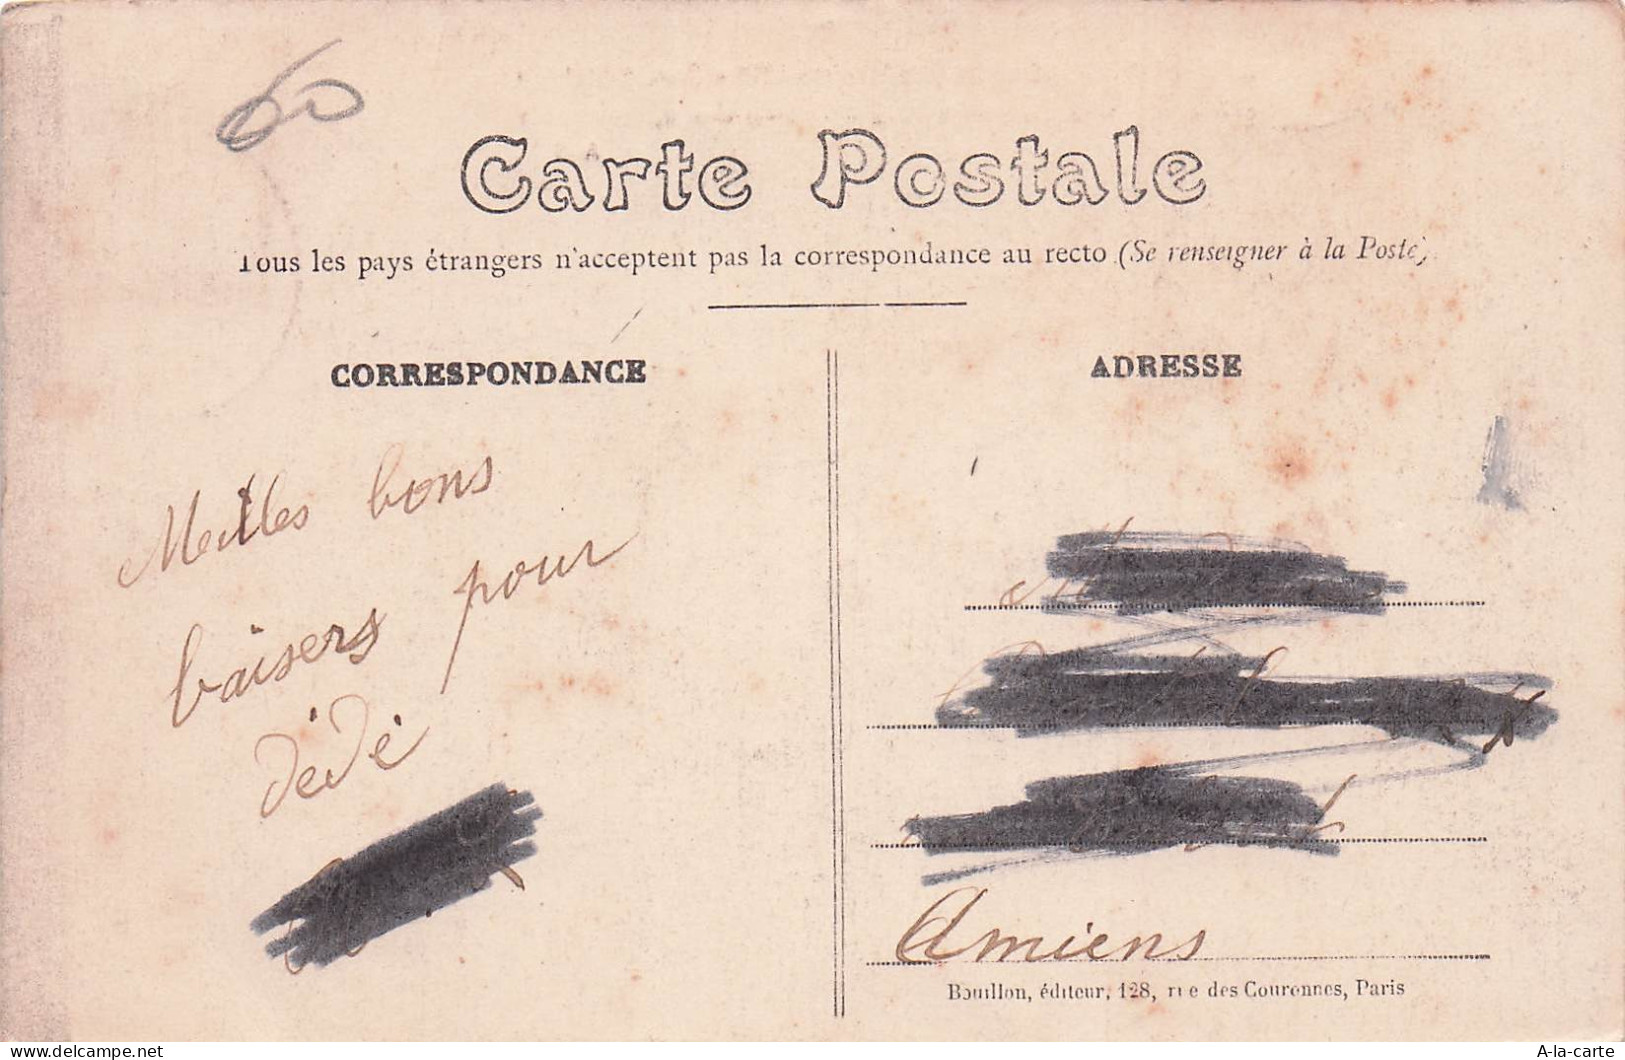 60
Carte Postale
Tous les pays étrangers n'acceptent pas la correspondance au recto (Se renseigner à la Poste)
CORRESPONDANCE
ADRESSE
Meilles bons
baisers pour
dédé
Amiens
Bouillon, éditeur, 128, rue des Couronnes, Paris
A-la-carte